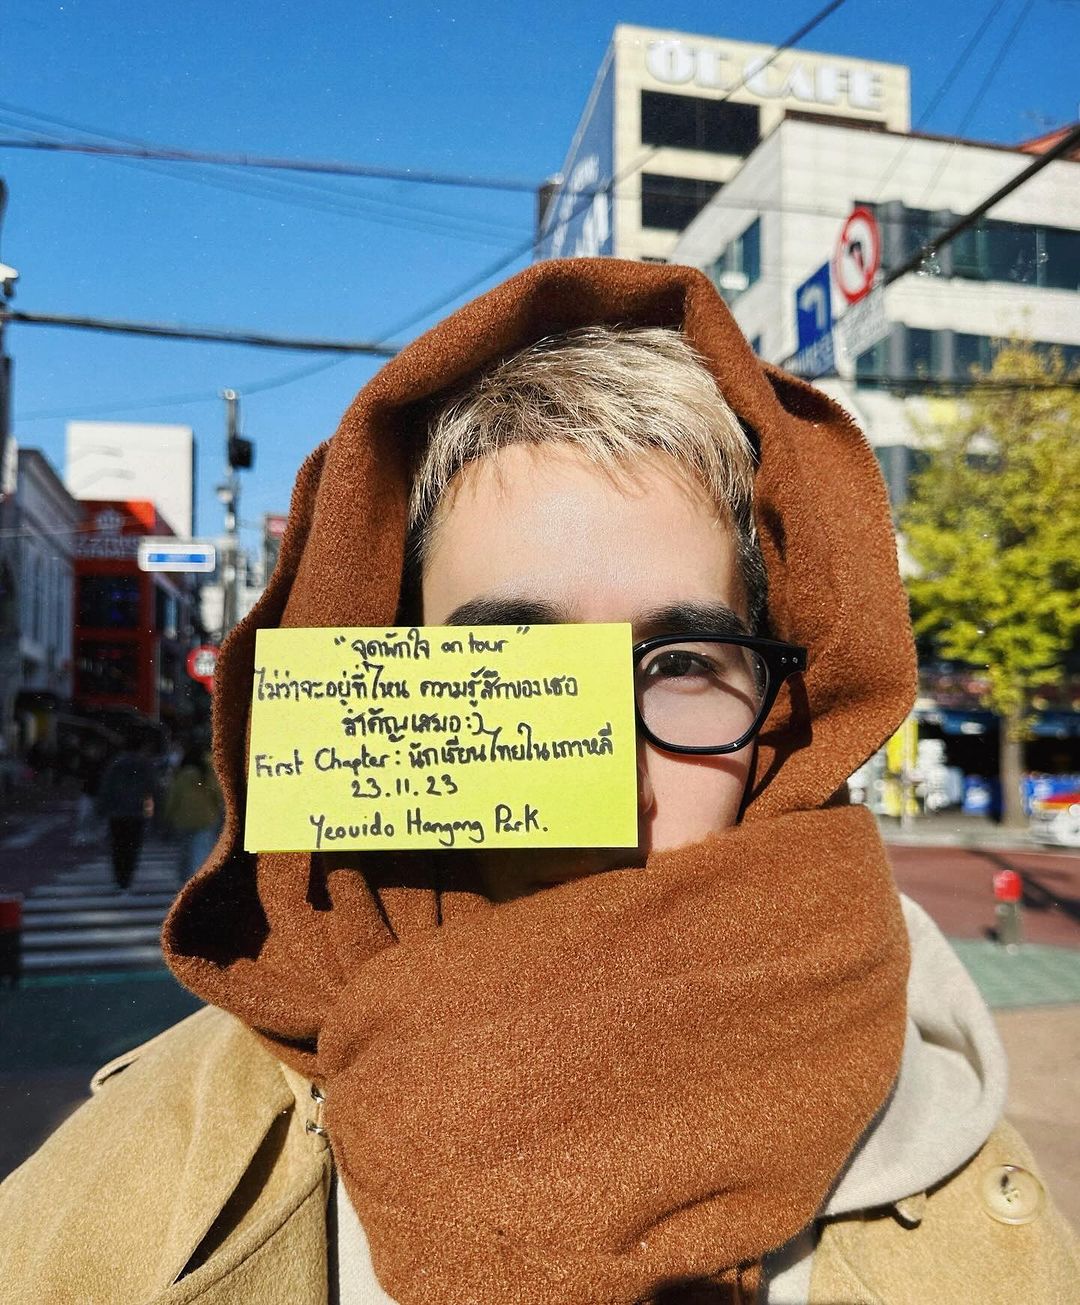 OE CAFE
"จุดพักใจ on tour"
ไม่ว่าจะอยู่ที่ไหน ความรู้สึกของเธอ
สำคัญเสมอ:)
First Chapter : นักเรียนไทยในเกาหลี
23.11.23
Yeouido Hangang Park.